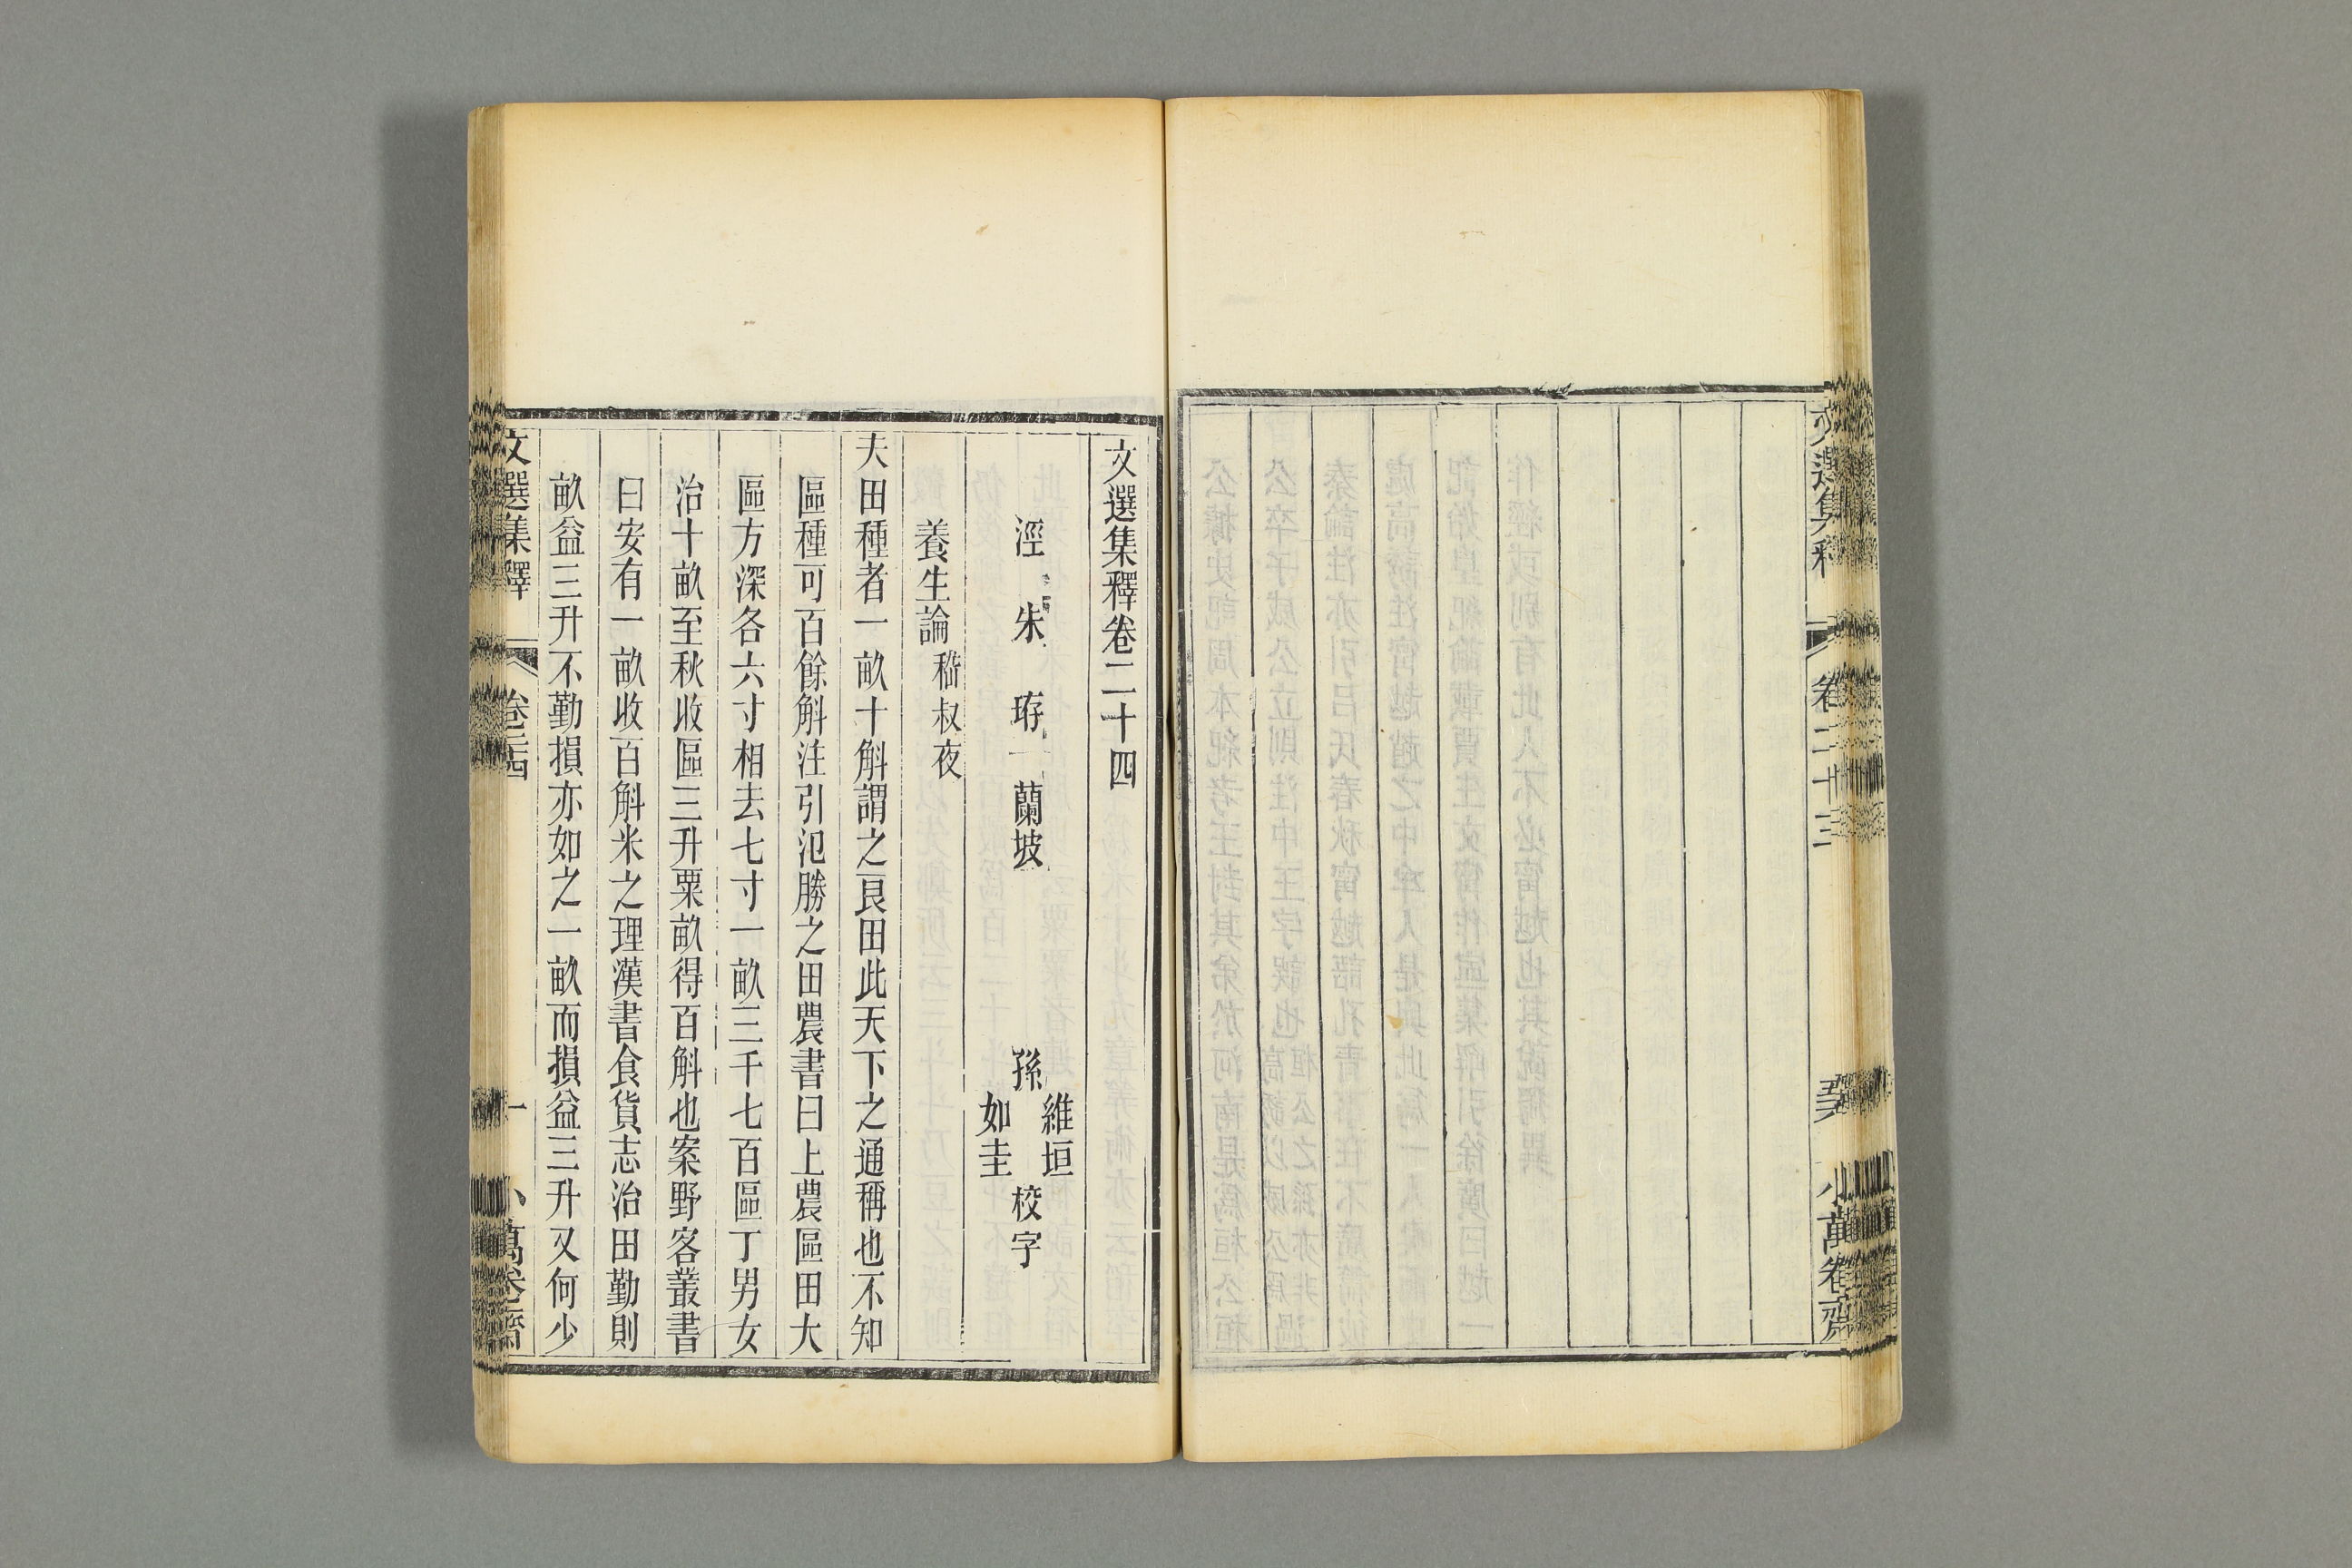 文選集釋
卷二十三
小萬卷齋
文選集釋卷二十四
涇 朱 珔 蘭坡 孫 維垣 如圭 校字
養生論 嵇叔夜
夫田種者一畝十斛謂之良田此天下之通稱也不知
區種可百餘斛注引氾勝之田農書曰上農區田大
區方深各六寸相去七寸一畝三千七百區丁男女
治十畝至秋收區三升粟畝得百斛也案野客叢書
曰安有一畝收百斛米之理漢書食貨志治田勤則
畝益三升不勤損亦如之一畝而損益三升又何少
文選集釋
卷二十四
一
小萬卷齋